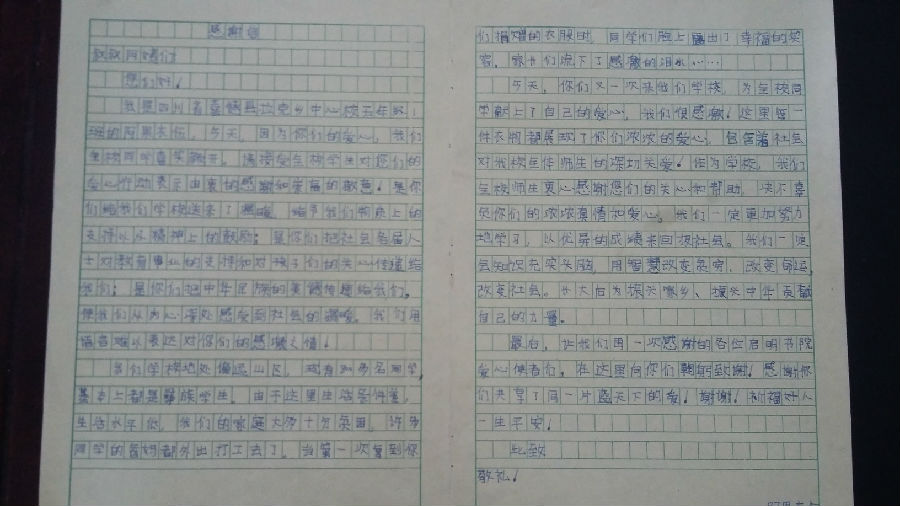 感谢信
叔叔阿姨们:
您们好!
我是四川省喜德县拉克乡中心校五年级1
班的阿黑衣伍。今天,因为你们的爱心,我们
全校同学喜笑颜开。谨接受全校学生对您们的
爱心行动表示由衷的感谢和崇高的敬意!是你
们给我们学校送来了温暖,给予我们物质上的
支持以及精神上的鼓励;是你们把社会各届人
士对教育事业的支持和对孩子们的关心传递给
我们;是你们把中华民族的美德传递给我们。
使我们从内心深处感受到社会的温暖。我们用
语言难以表达对你们的感激之情!
我们学校地处偏远山区,现有 多名同学,
基本上都是彝族学生。由于这里生活条件差,
生活水平低,我们的家庭大多十分贫困,许多
同学的爸妈都外出打工去了。当第一次看到你
们捐赠的衣服时,同学们脸上露出了幸福的笑
容,家长们流下了感激的泪水……
今天,你们又一次来我们学校,为全校同
学献上了自己的爱心。我们很感激!这里每一
件衣物都展现了你们浓浓的爱心,包含着社会
对我校全体师生的深切关爱!作为学校,我们
全校师生衷心感谢您们的关心和帮助,决不辜
负你们的浓浓真情和爱心。我们一定更加努力
地学习,以优异的成绩来回报社会。我们一定
会知识充实头脑,用智慧改变贫穷,改变命运,
改变社会。长大后为振兴家乡、振兴中华贡献
自己的力量。
最后,让我们再一次感谢的各位启明书院
爱心使者们。在这里向你们鞠躬致谢!感谢你
们共享了同一片蓝天下的爱!谢谢!祝福好人
一生平安!
此致
敬礼!